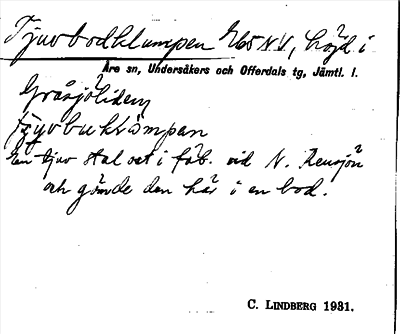 Tjuvbodklumpen 265 NV, höjd i
Åre sn, Undersåkers och Offerdals tg, Jämtl. l.
Gråsjöliden
tjuvbuklömpan
En tjuv stal ost i fäb. vid N. Rensjön
och gömde den här i en bod.
C. LINDBERG 1931.